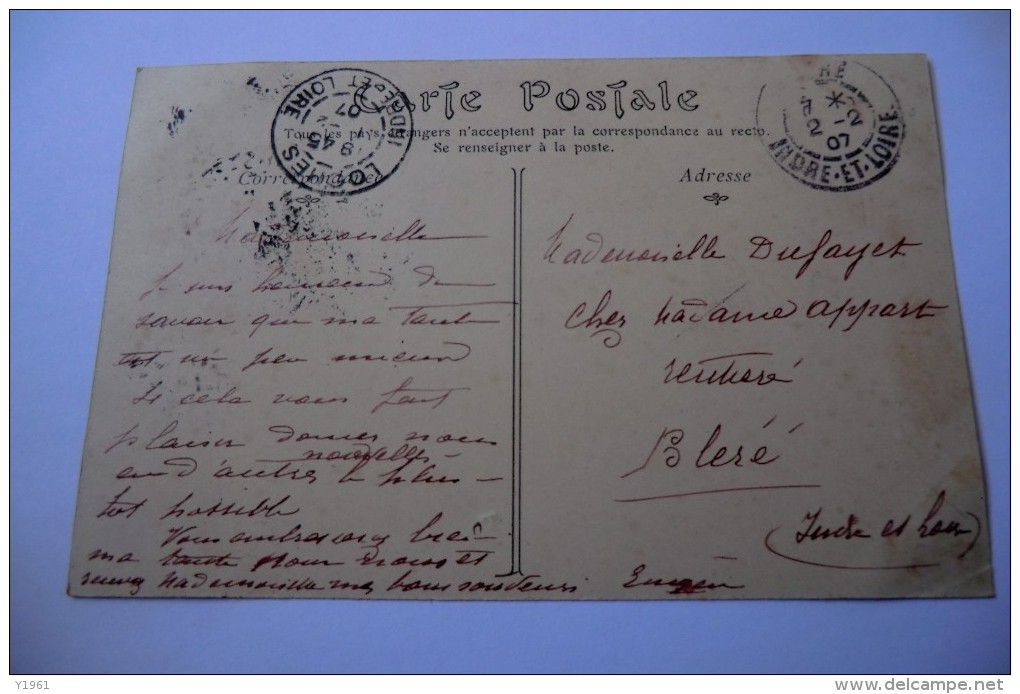 Carte Postale
Tous les pays étrangers n'acceptent par la correspondance au recto.
Se renseigner à la poste.
Correspondance
Adresse
LOCHES
INDRE ET LOIRE
8 45
07
INDRE-ET-LOIRE
2 07
Mademoiselle
Je suis
savoir que ma tante
un peu mieux
Si cela vous faut
plaisir donner nous
nouvelles
en d'autres le plus
tot possible
Vous embrasserez bien
ma tante pour nous et
recevez Mademoiselle mes bons souvenirs
Mademoiselle Dufayet
Chez Madame Appart
rentiere
Bleré
(Indre et Loire)
Y1961
www.delcampe.net